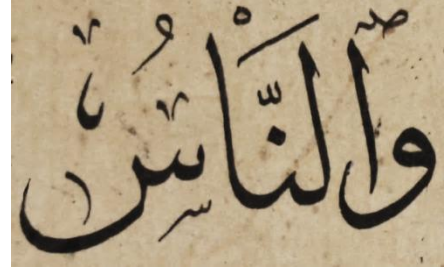 وٱلنَّاسُ